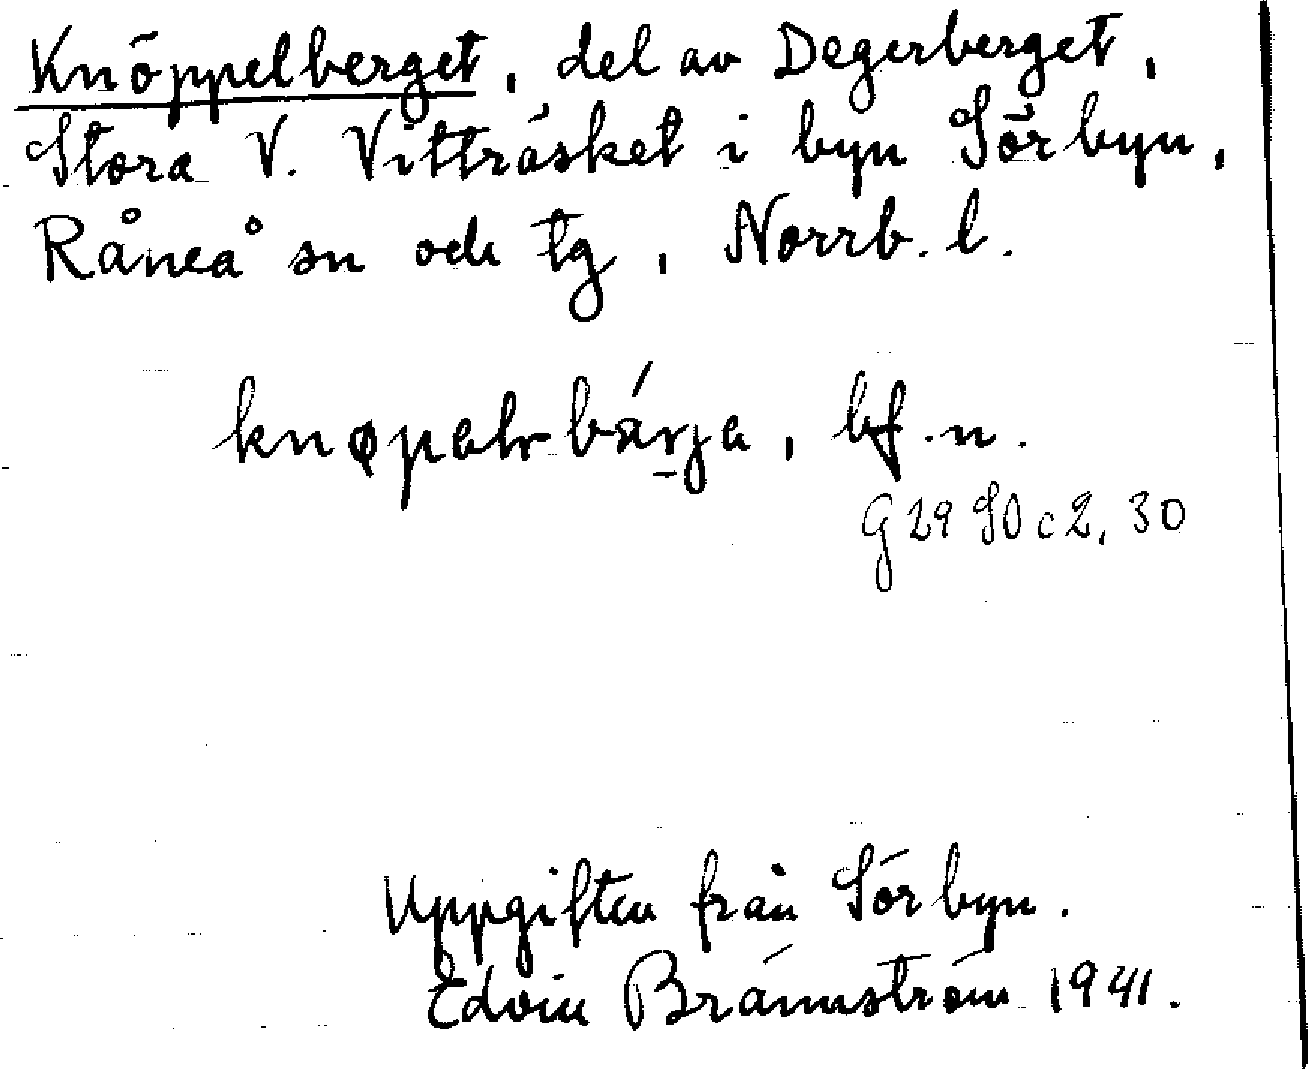 Knöppelberget, del av Degerberget,
Stora V. Vitträsket i byn Sörbyn,
Råneå sn och tg, Norrb. l.
knøpalrbárja, bf. n.
G 29 S0 c 2, 30
Uppgiften från Sörbyn.
Edvin Brännström 1941.